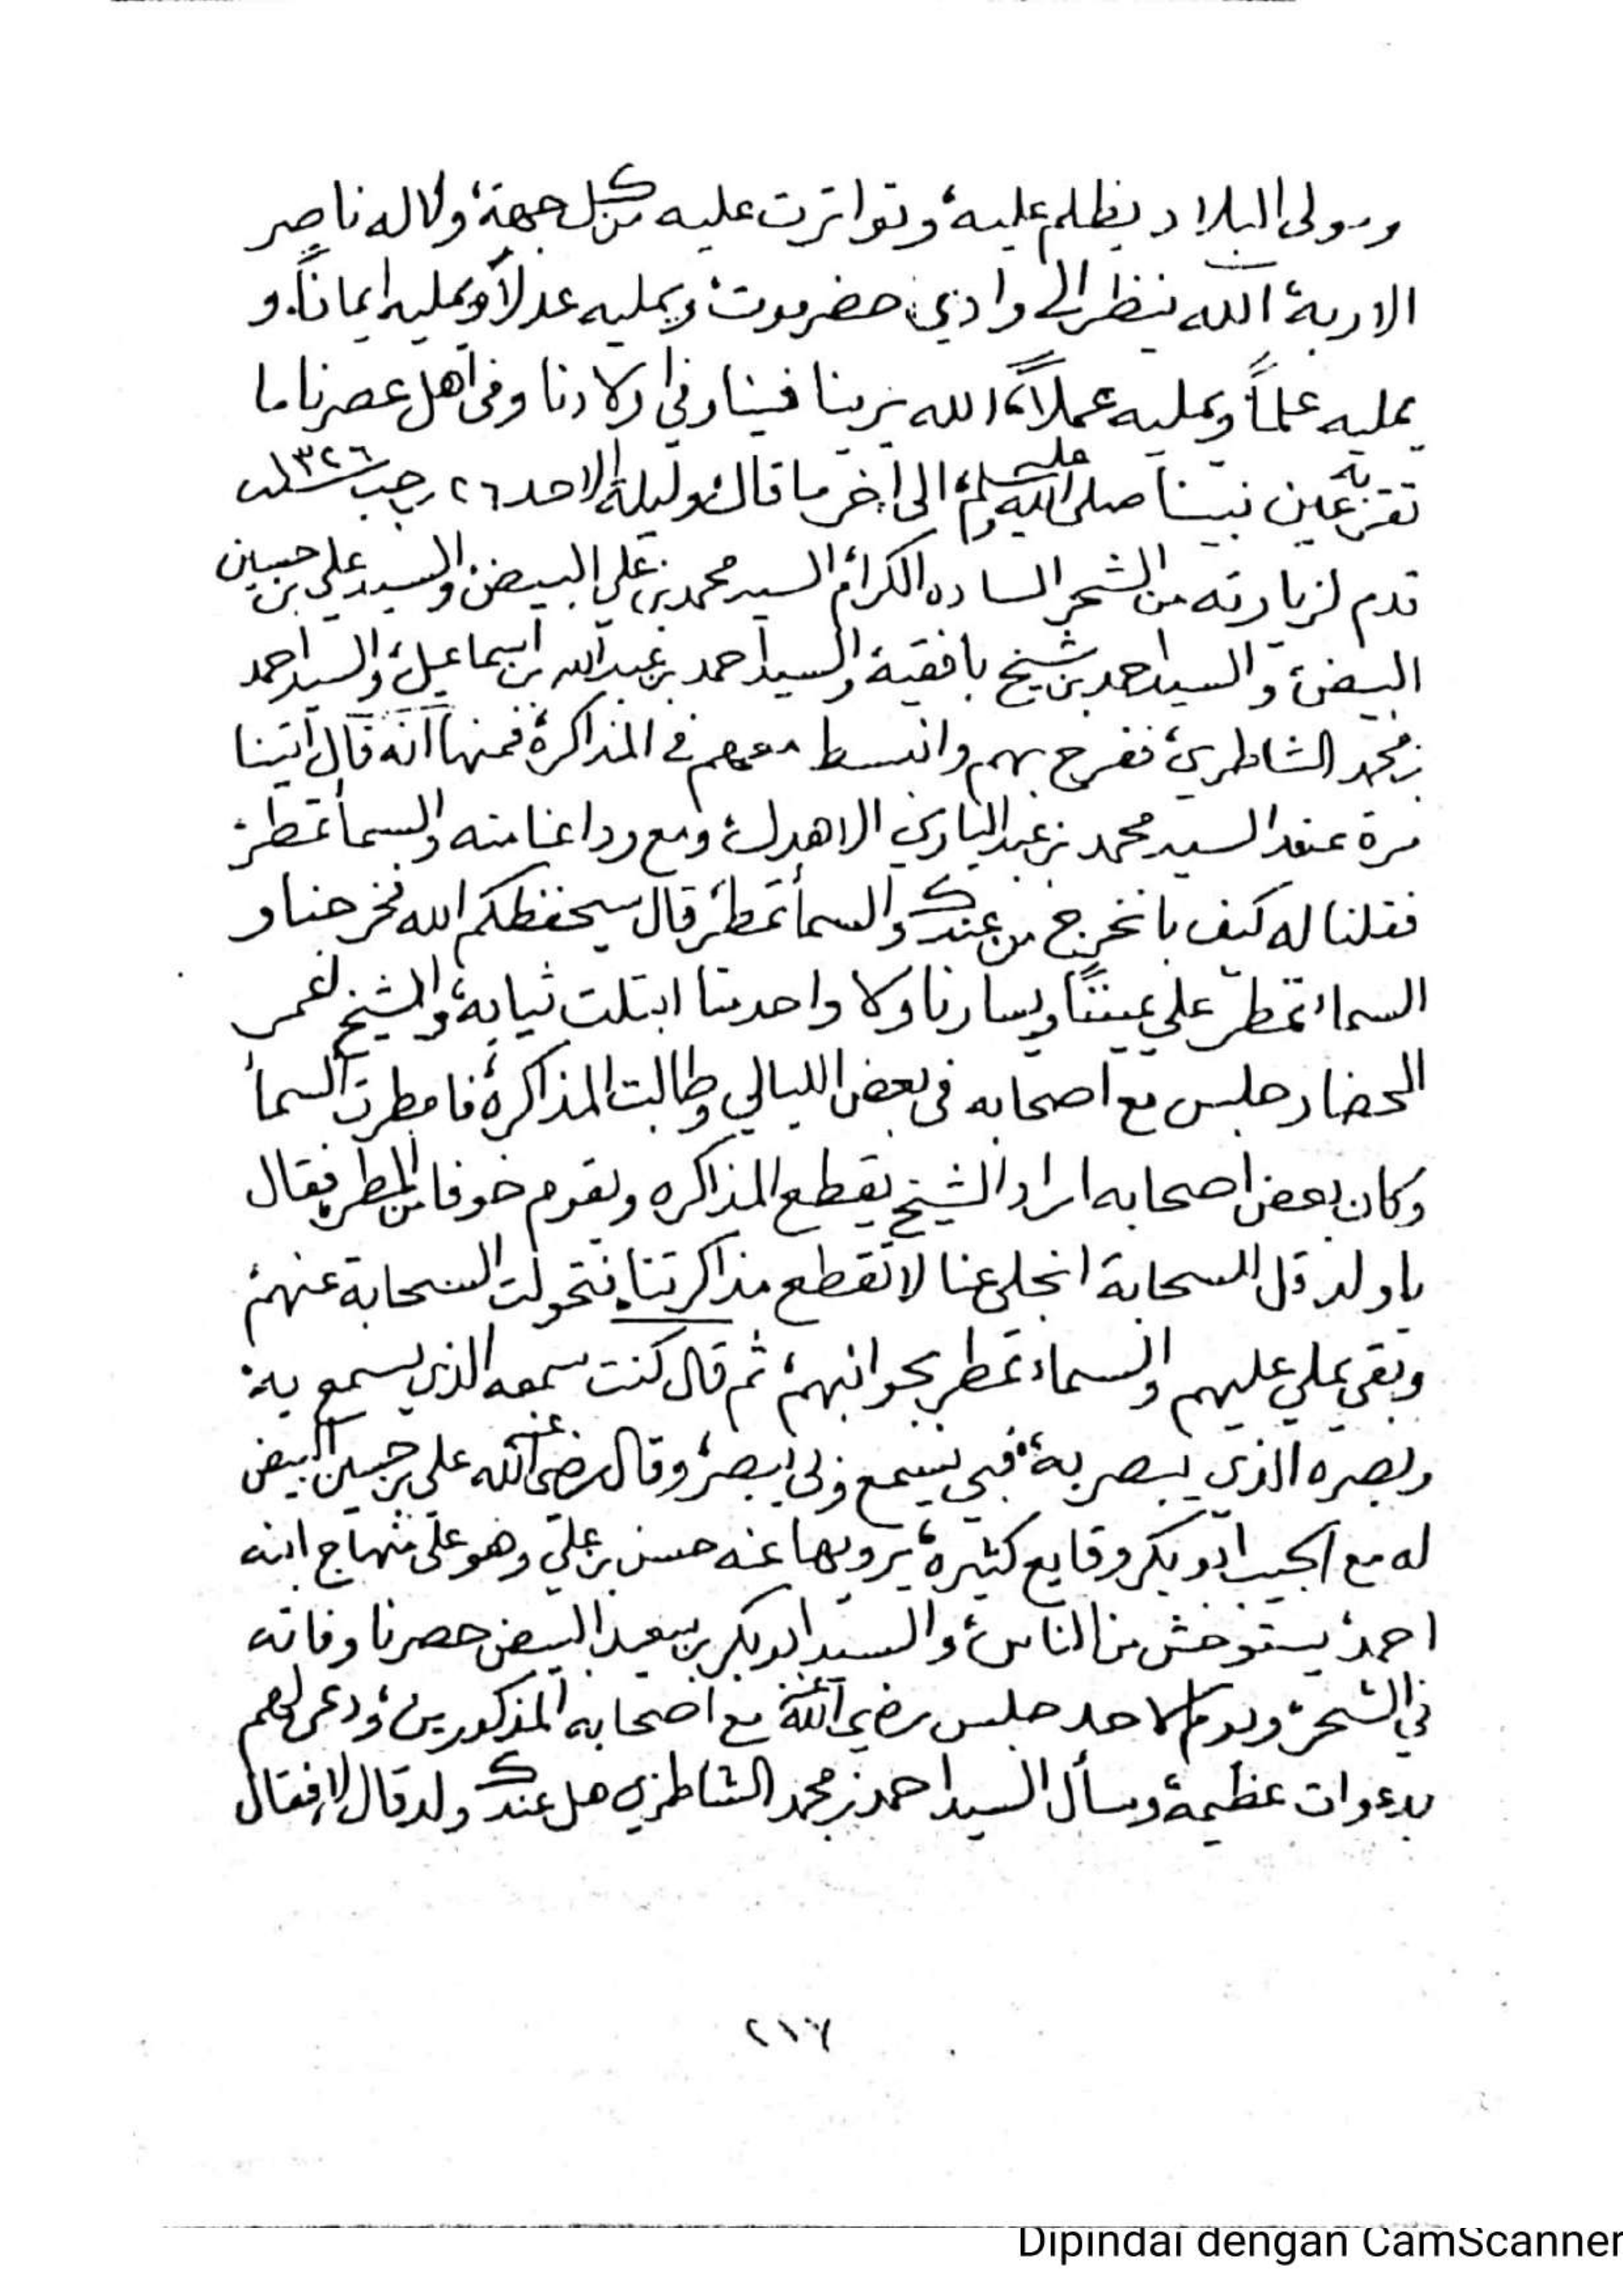 ومولى البلاد يظلم عليه، وتواترت عليه من كل جهة، ولا له ناصر
الا ربه، الله ينظر الى وادي حضرموت، ويمليه عدلاً ويمليه ايماناً، و
يمليه علماً ويمليه عملاً، الله يرينا فينا وفي اولادنا وفى اهل عصرنا ما
تقربه عين نبينا صلى الله عليه وسلم، الى اخر ما قال، وليلة الاحد ٢٦ رجب سنة ١٣٢٦
قدم لزيارته من الشحر الساده الكرام، السيد محمد بن علي البيض، والسيد علي بن حسين
البيض، والسيد احمد بن شيخ بافقيه، والسيد احمد بن عبدالله بن اسماعيل، والسيد احمد
بن محمد الشاطري، ففرح بهم وانبسط معهم في المذاكرة، فمنها انه قال اتينا
مرة عند السيد محمد بن عبدالباري الاهدل، ومع وداعنا منه والسما تمطر،
فقلنا له كيف بانخرج من عندك والسما تمطر، قال سيحفظكم الله، فخرجنا و
السماء تمطر على يميننا ويسارنا ولا واحد منا ابتلت ثيابه، والشيخ عمر
المحضار جلس مع اصحابه فى بعض الليالي وطالت المذاكرة، فامطرت السما
وكان بعض اصحابه اراد الشيخ يقطع المذاكره ويقوم خوفا من المطر، فقال
ياولد قل للسحابة انجلي عنا لا تقطع مذاكرتنا، فتحولت السحابة عنهم،
وبقى يملي عليهم والسماء تمطر بجوانبهم، ثم قال كنت سمعه الذي يسمع به،
وبصره الذي يبصر به، فبي يسمع وبي يبصر، وقال رضي الله عنه علي بن حسين البيض
له مع الحبيب ابوبكر وقايع كثيرة، يرويها عنه حسن بن علي، وهو على منهاج ابنه
احمد، يستوحش من الناس، والسيد ابوبكر بن سعيد البيض حضرنا وفاته
في الشحر، ويوم الاحد جلس رضي الله عنه مع اصحابه المذكورين، ودعى لهم
بدعوات عظيمة، وسأل السيد احمد بن محمد الشاطري هل عندك ولد قال لا، فقال
٢١٧
Dipindai dengan CamScanner